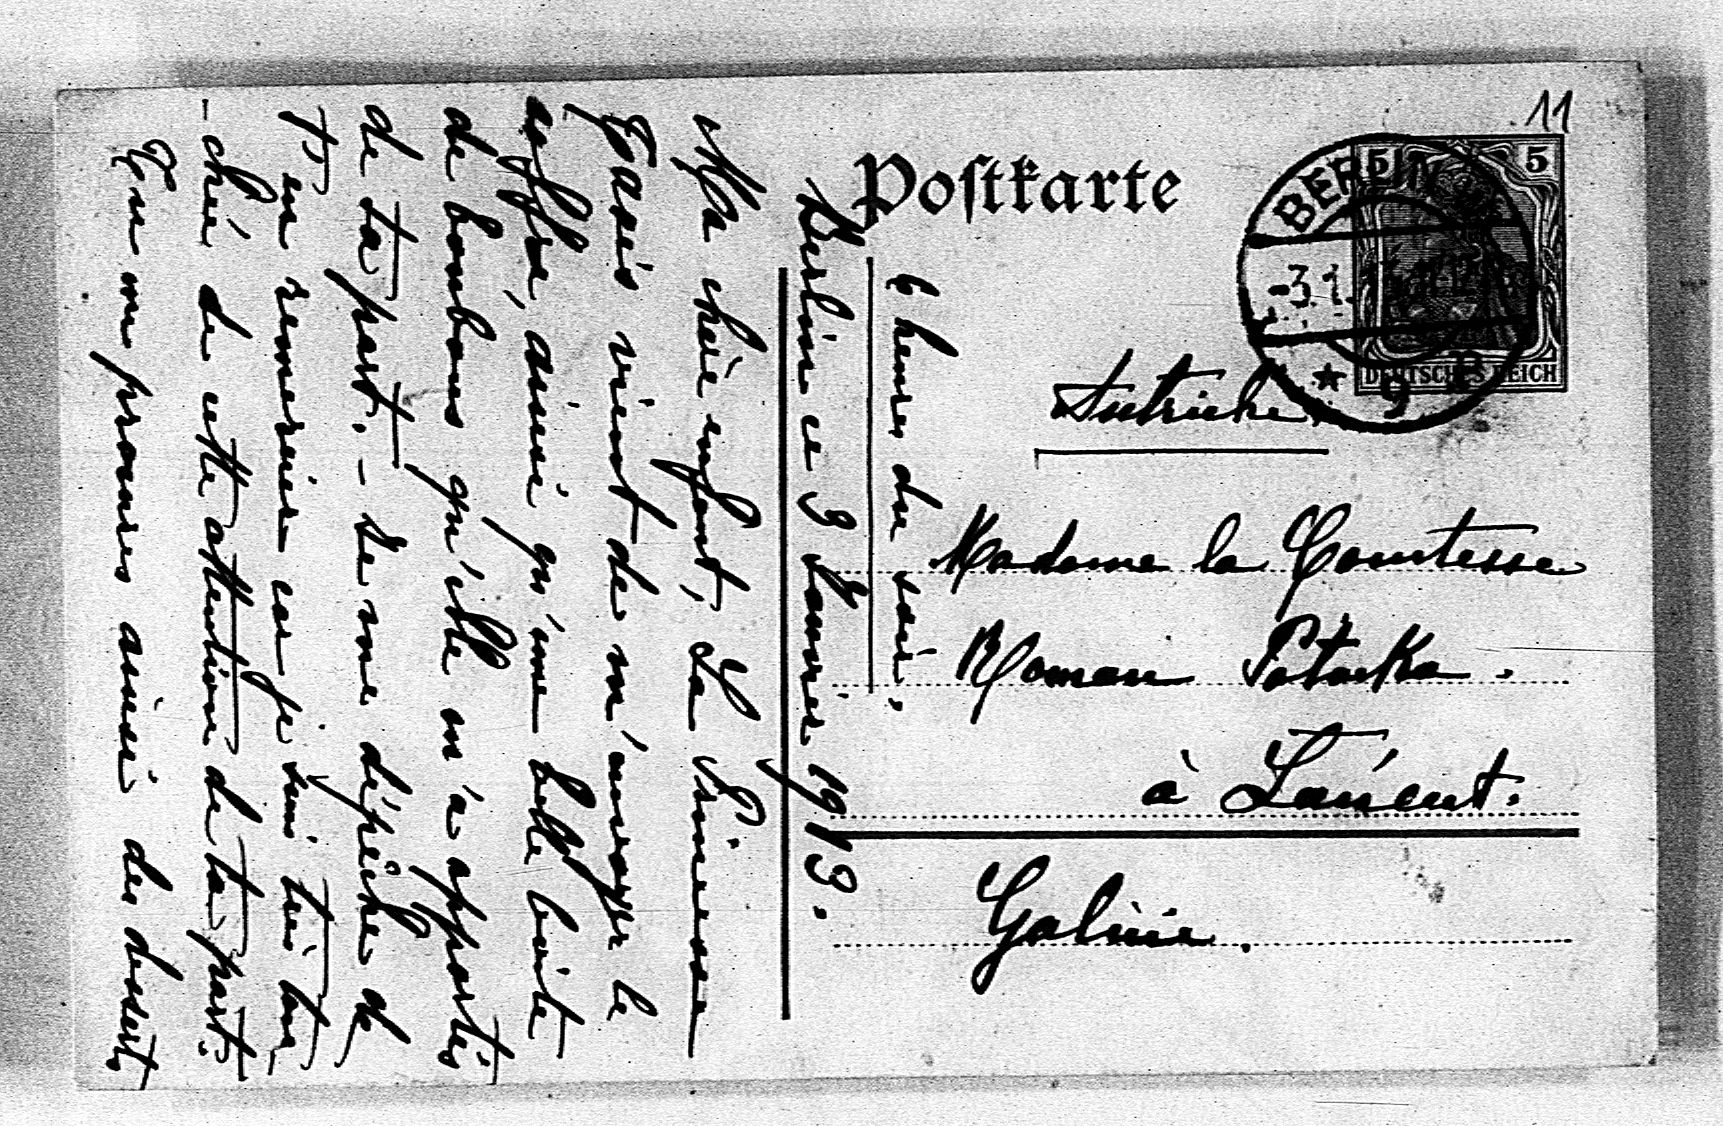 11
Postkarte
5 5
DEUTSCHES REICH
BERLIN
-3.1.13.11-12
* 9
Autriche
Madame la Comtesse
Roman Potocka.
à Łańcut.
Galicie.
6 heures du soir.
Berlin ce 3 Janvier 1913.
Ma chère enfant, La Princesse
vient de m'envoyer le
coffre, ainsi qu'une belle boîte
de bonbons qu'elle m'a apportés
de ta part. – Je me dépêche de
T'en remercier car je suis très tou-
-chée de cette attention de ta part.
Tu me prouves ainsi des dessert